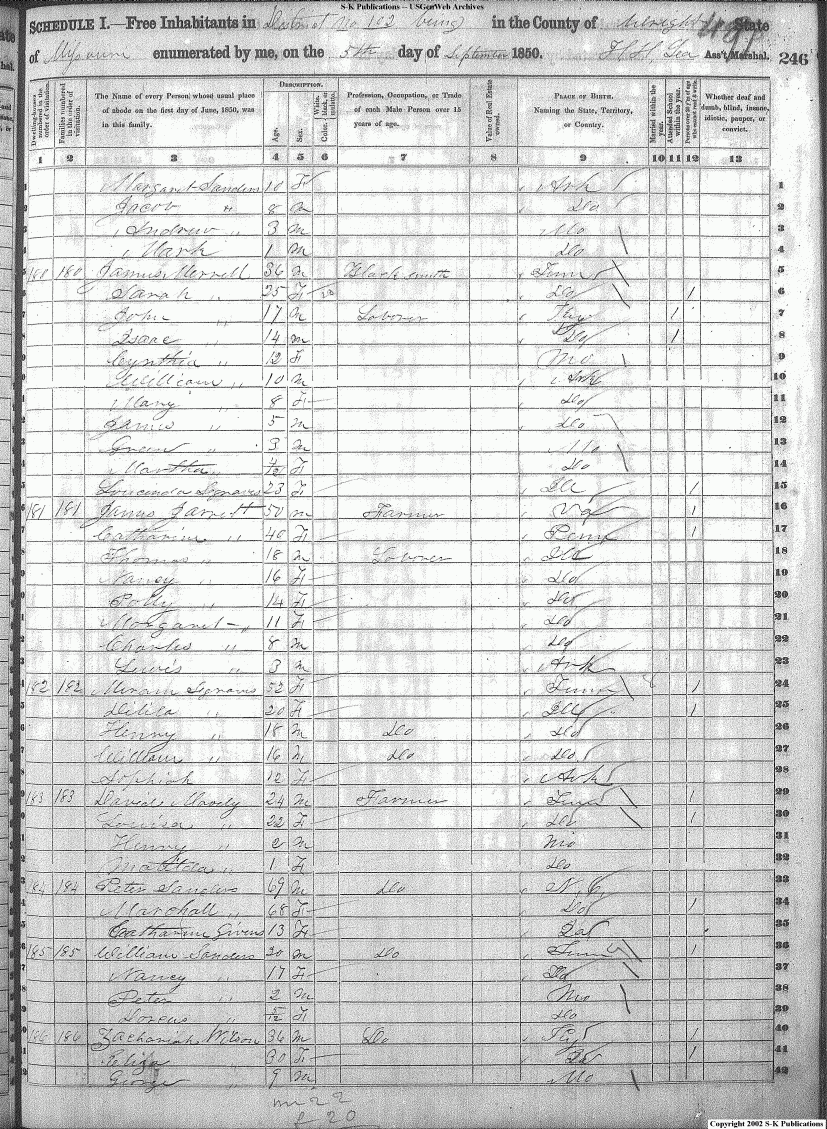 S-K Publications -- USGenWeb Archives
SCHEDULE I.—Free Inhabitants in District No 102 being in the County of Wright State
of Missouri enumerated by me, on the 5th day of September 1850. Ass't Marshal. 246
Dwelling-houses numbered in the order of visitation.
Families numbered in the order of visitation.
The Name of every Person whose usual place of abode on the first day of June, 1850, was in this family.
DESCRIPTION.
Age.
Sex.
White, black, or mulatto.
Color
Profession, Occupation, or Trade of each Male Person over 15 years of age.
Value of Real Estate owned.
PLACE OF BIRTH. Naming the State, Territory, or Country.
Married within the year.
Attended School within the year.
Whether deaf and dumb, blind, insane, idiotic, pauper, or convict.
1 2 3 4 5 6 7 8 9 10 11 12 13
Margaret Sanders 10 F Ark 1
Jacob " 8 M Do 2
Andrew " 3 M Mo 3
Mark 1 M Do 4
180 180 James Merrell 36 M Black smith Tenn 5
Sarah " 25 F Do / 6
John " 17 M Laborer Ky / 7
Isaac " 14 M Do / 8
Cynthia " 12 F Mo 9
William " 10 M Ark 10
Mary " 8 F Do 11
James " 5 M Do 12
Green " 3 M Mo 13
Martha " 4/12 F Do 14
23 F Ill / 15
181 181 James Jarrett 50 M Farmer Va / 16
Catharine " 40 F Penn / 17
Thomas " 18 M Laborer Ill 18
Nancy " 16 F Do 19
Polly " 14 F Do 20
Margaret " 11 F Do 21
Charles " 8 M Do 22
Lewis " 3 M Ark 23
182 182 52 F Tenn / 24
20 F Ill / 25
Henry " 18 M Do Do 26
William " 16 M Do Do 27
12 F Ark 28
183 183 24 M Farmer Tenn / 29
Louisa " 22 F Do / 30
Henry " 2 M Mo 31
Matilda " 1 F Do 32
184 184 Peter Sanders 69 M Do N.C. 33
68 F Do / 34
Catharine Givens 13 F 35
185 185 William Sanders 20 M Do Tenn / 36
Nancy " 17 F 37
Peter " 2 M Mo 38
5/12 F Do 39
186 186 Zachariah Wilson 36 M Do Ky / 40
Eliza " 30 F / 41
George " 9 M Mo 42
m 22
f 20
Copyright 2002 S-K Publications